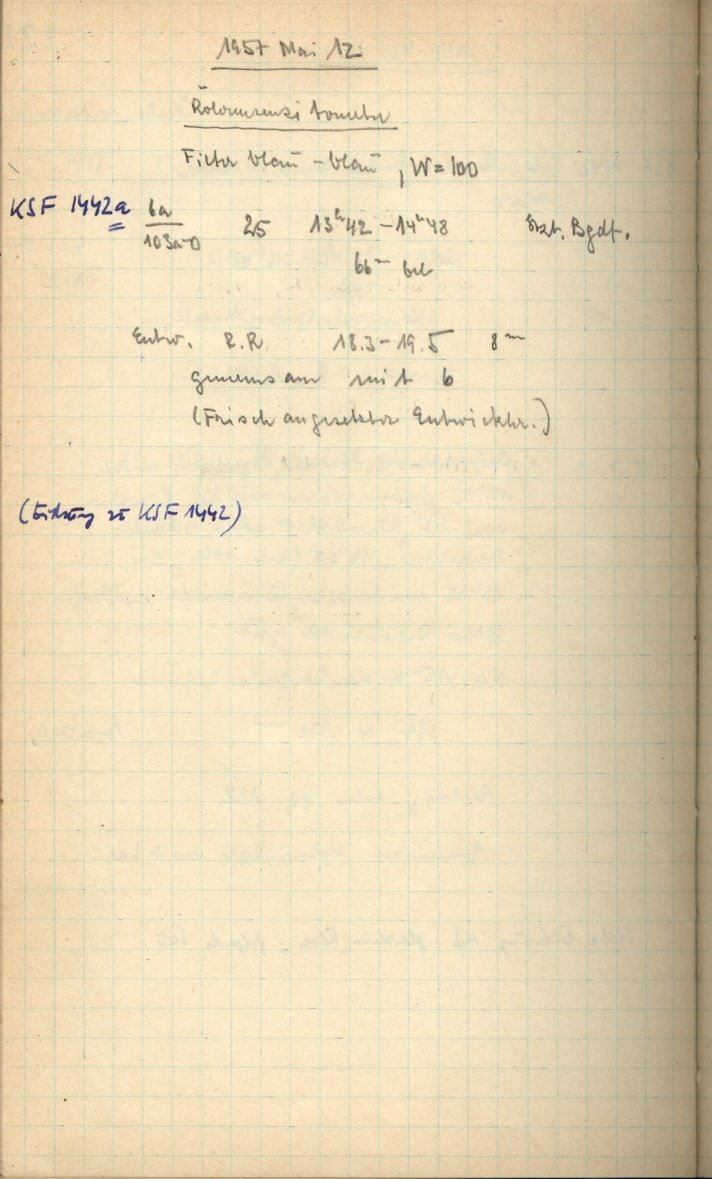 1957 Mai 12
Röhrensensitometer
Filter blau - blau, W = 100
KSF 1442a 6a 25 13h42 - 14h48 Bgdf.
103a-0
66m bel
Entw. R.R. 18.3 - 19.5 8m
gemeinsam mit 6
(Frisch angesetzter Entwickler.)
(Eichung zu KSF 1442)